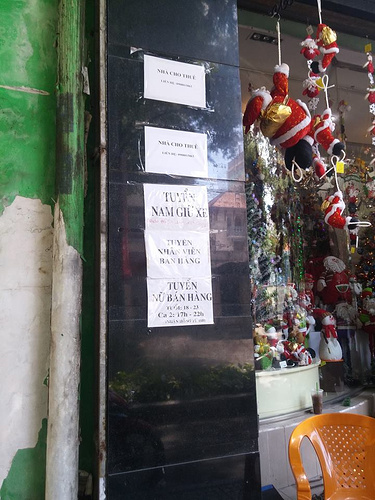 NHÀ CHO THUÊ
NHÀ CHO THUÊ
TUYỂN
NAM GIỮ XE
TUYỂN
NHÂN VIÊN
BÁN HÀNG
TUYỂN
NỮ BÁN HÀNG
TUỔI: 18 - 25
Ca 2: 17h - 22h